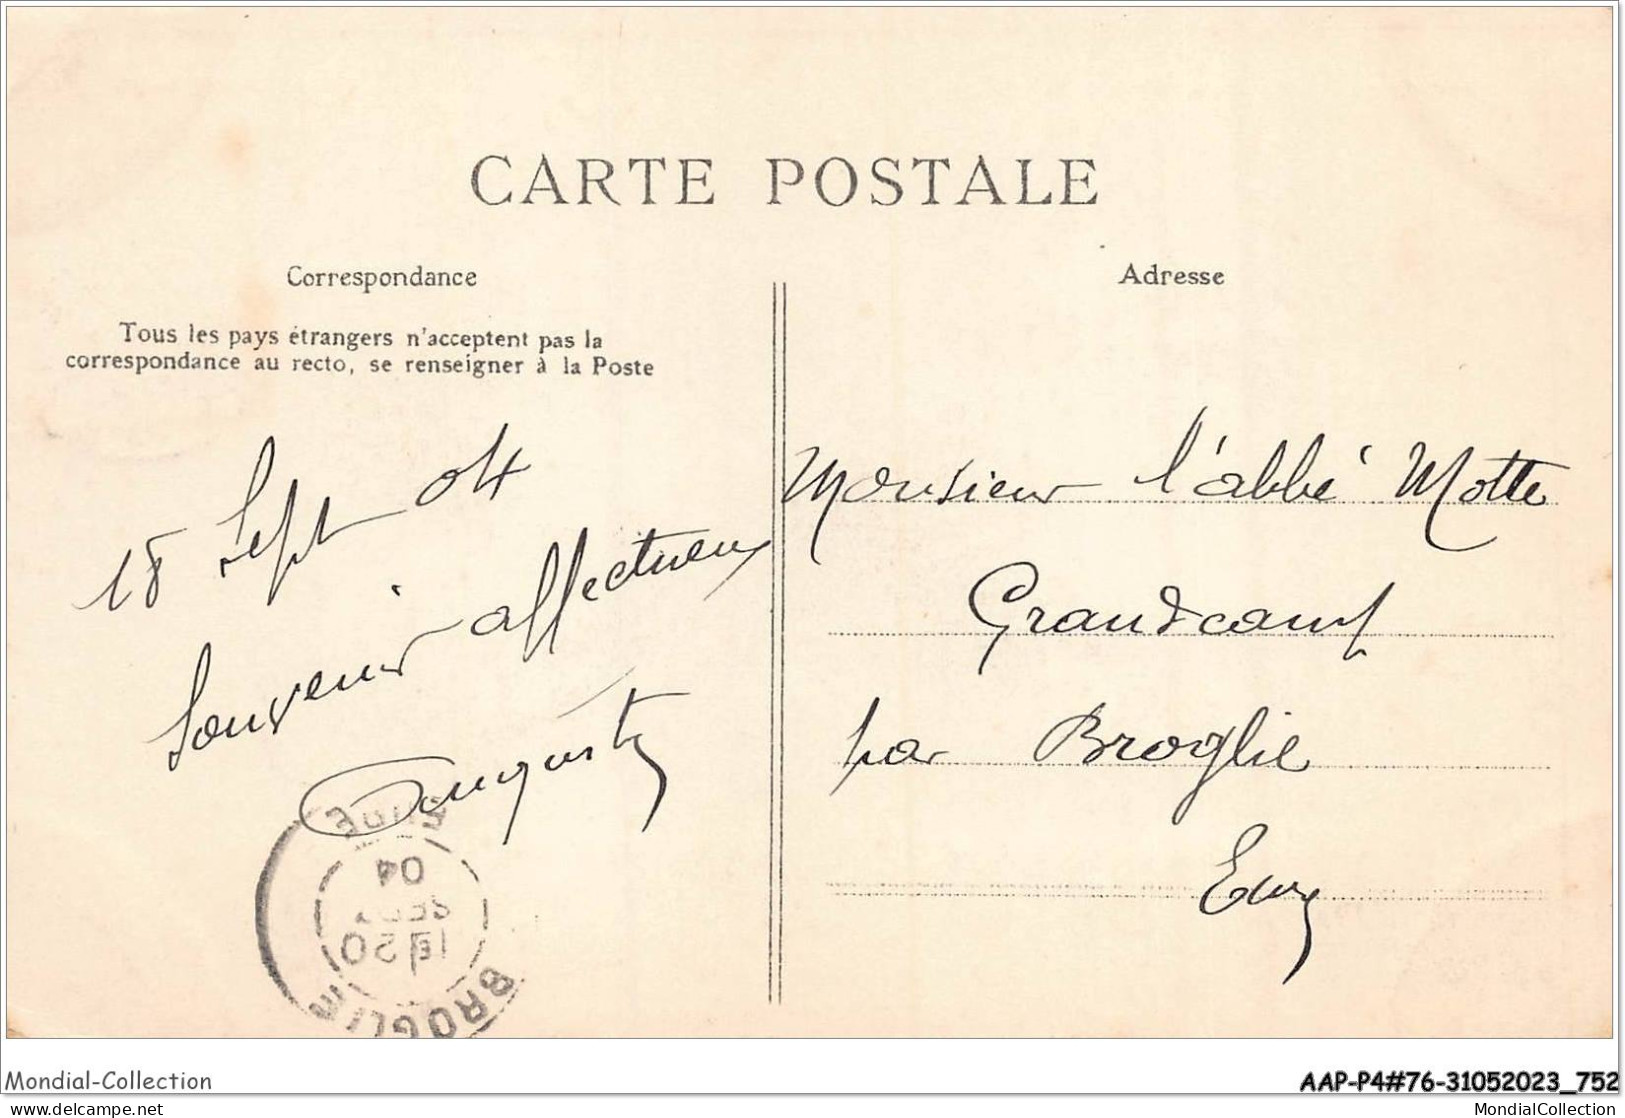 CARTE POSTALE
Correspondance
Tous les pays étrangers n'acceptent pas la
correspondance au recto, se renseigner à la Poste
18 Sept 04
Souvenir affectueux
Adresse
Monsieur l'abbé Motte
Grandcamp
par Broglie
Eure
EURE
04
SEPT
20
BROGLIE
Mondial-Collection
AAP-P4#76-31052023_752
delcampe.net
MondialCollection